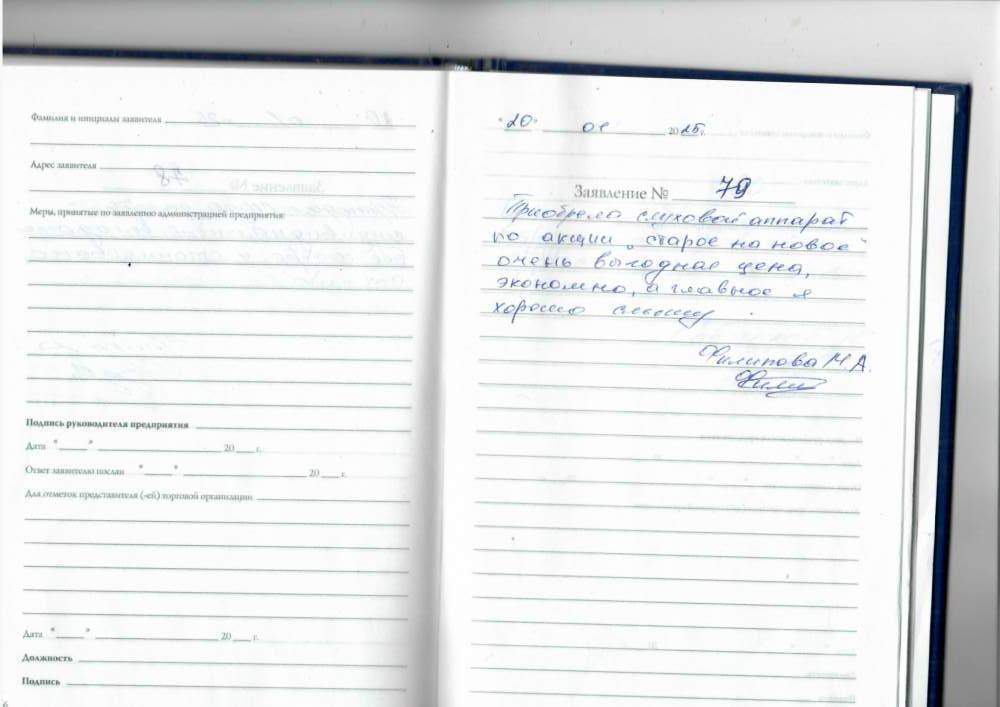 Фамилия и инициалы заявителя
Адрес заявителя
Меры, принятые по заявлению администрацией предприятия:
Подпись руководителя предприятия
Дата " " 20 г.
Ответ заявителю послан " " 20 г.
Для отметок представителя (-ей) торговой организации
Дата " " 20 г.
Должность
Подпись
6
"20" 01 2025г.
Заявление № 79
Приобрела слуховой аппарат
по акции „старое на новое"
очень выгодная цена,
экономно, а главное я
хорошо слышу.
Филипова М.А.